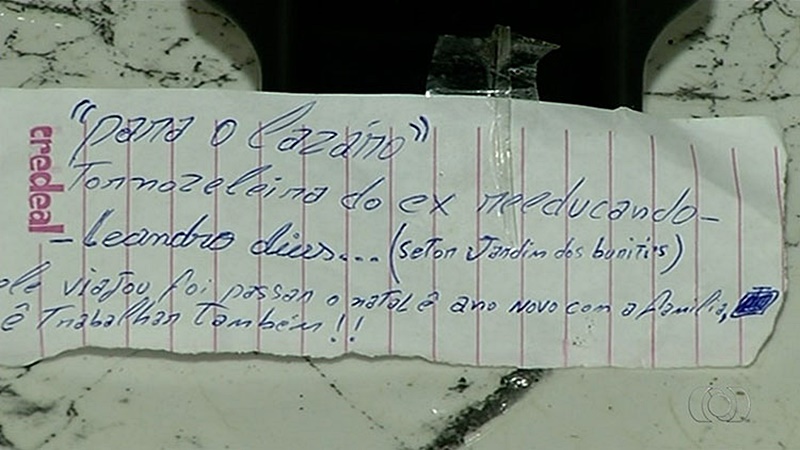 "para o Lazáro"
Tornozeleira do ex reeducando-
-Leandro dias... (setor Jardim dos buritis)
ele viajou foi passar o natal ê ano novo com a familia,
ê Trabalhar Também!!
credeal